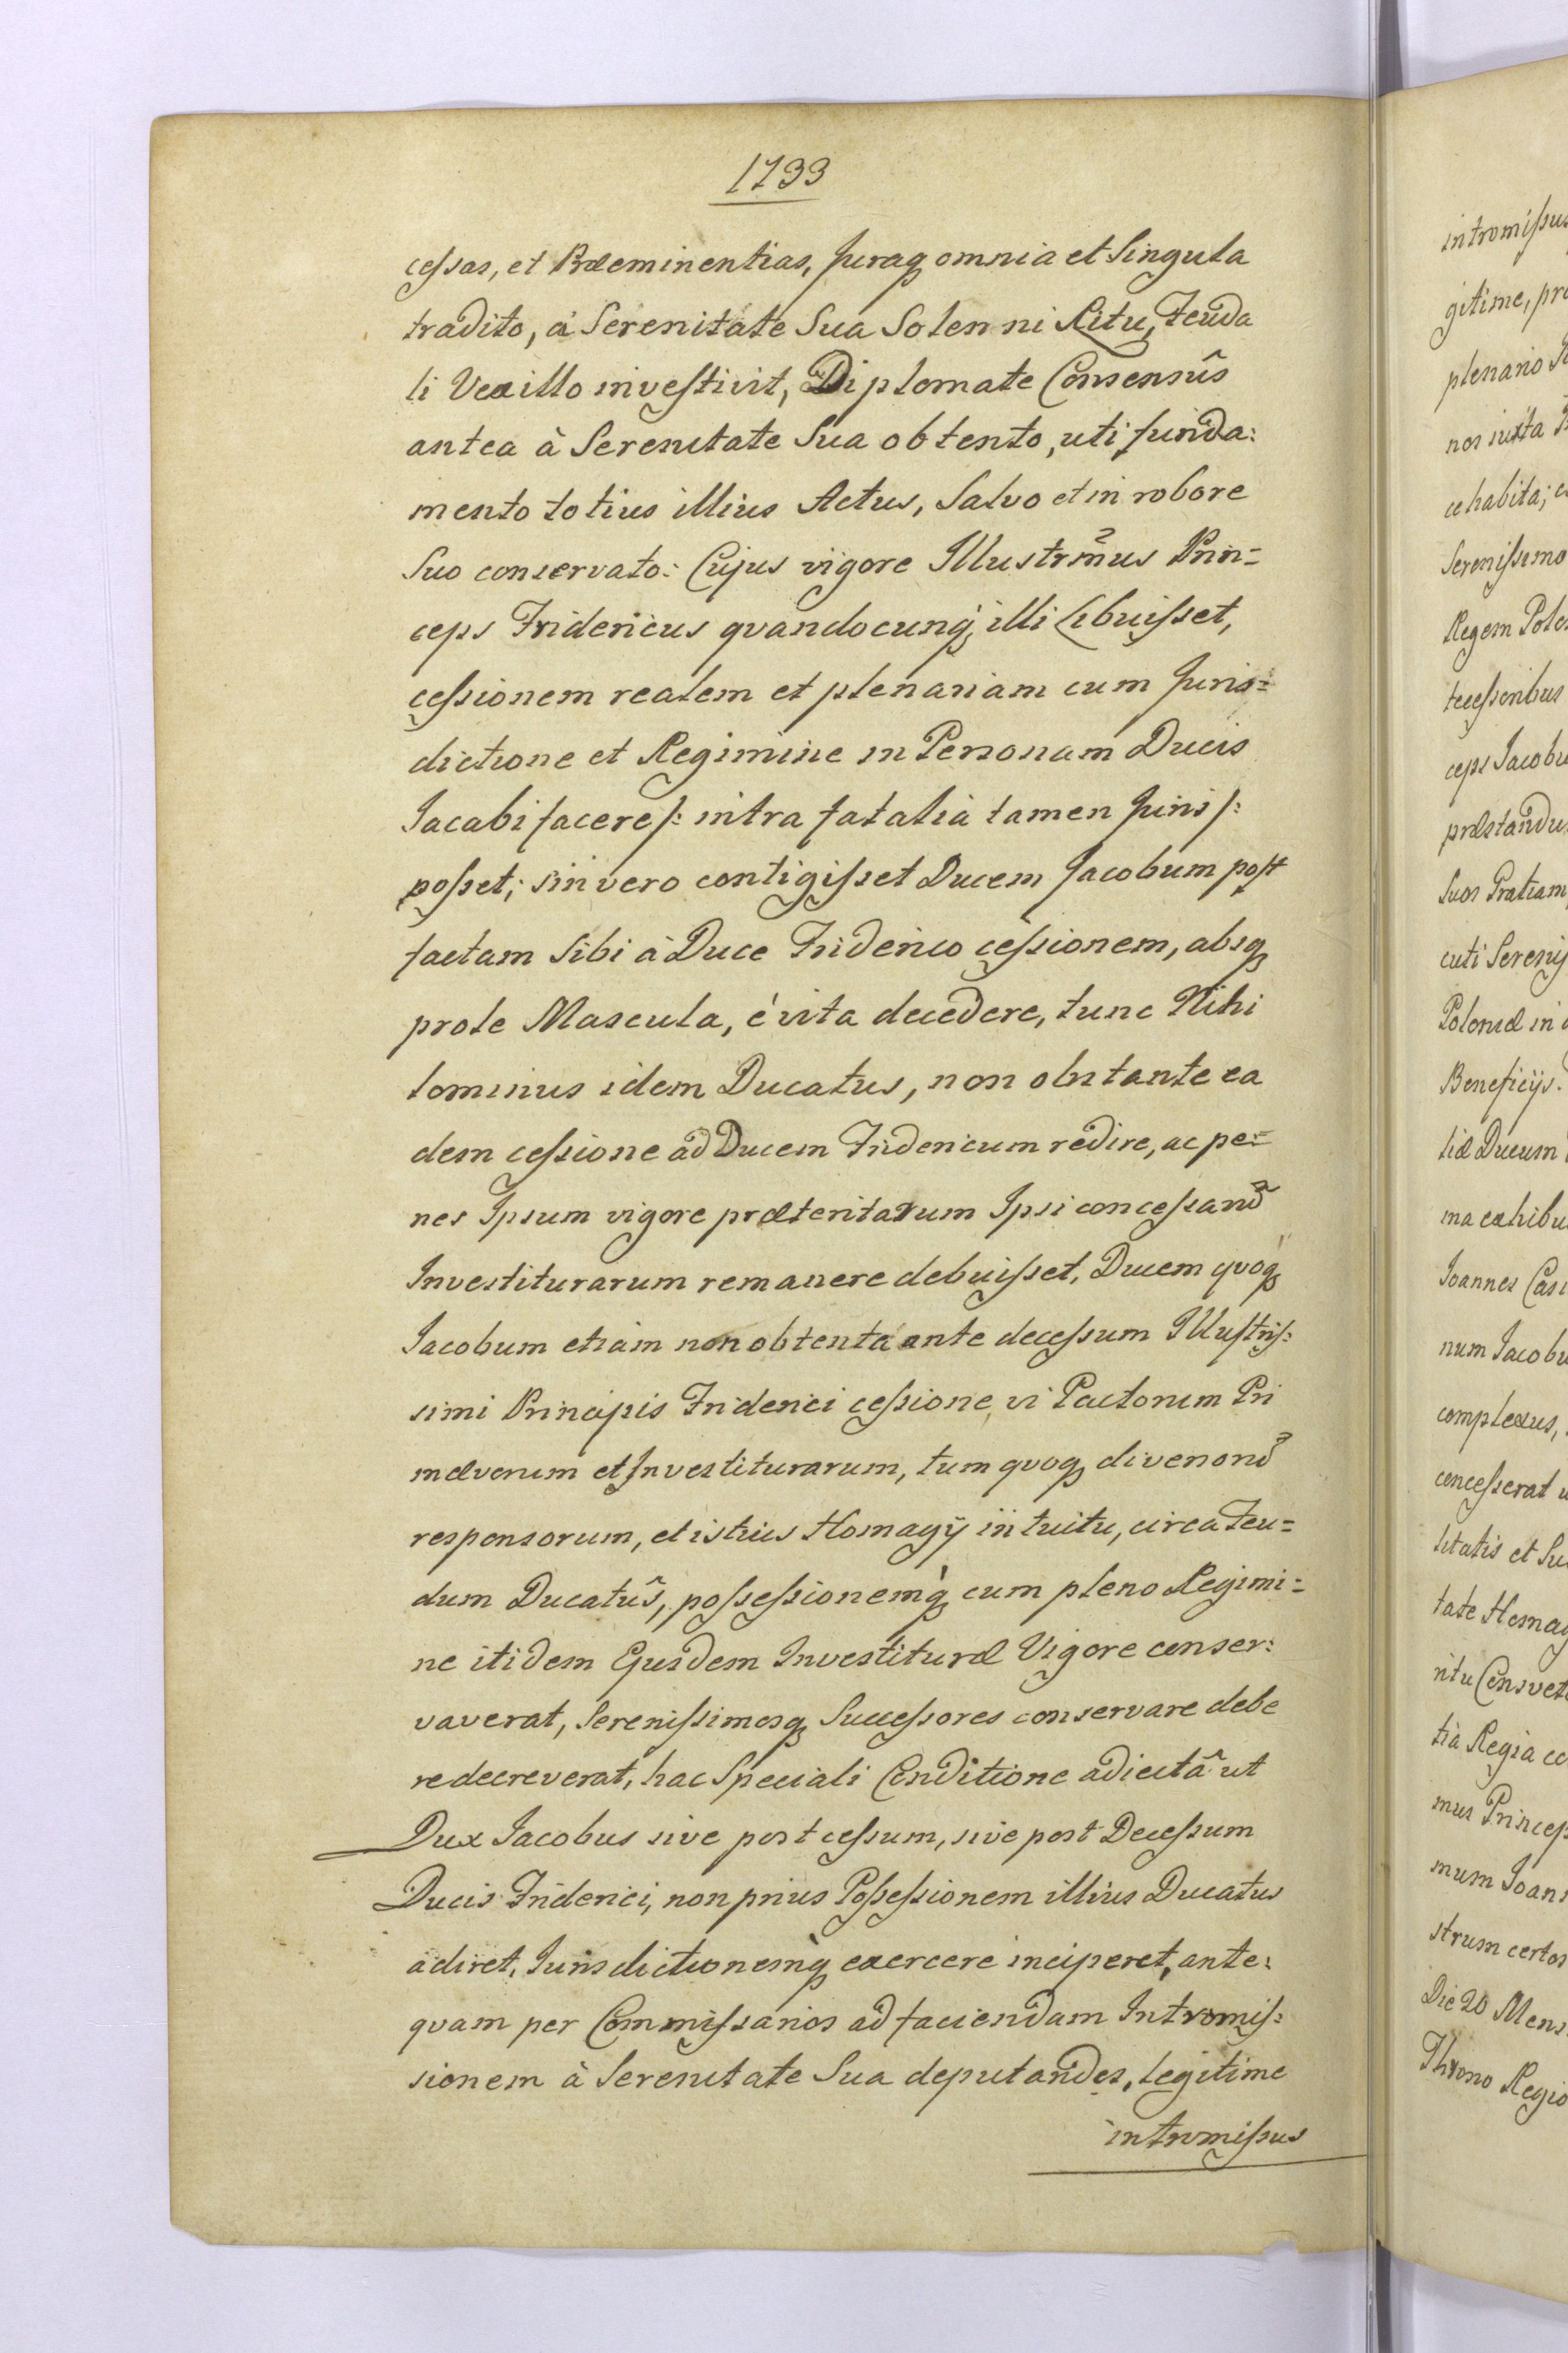 1733
cessas, et Præeminentias, Juraq omnia et Singula
tradito, à Serenitate Sua Solenni Ritu, Feuda
li Vexillo investivit, Diplomate Consensûs
antea à Serenitate Sua obtento, uti funda:
mento totius illius Actus, Salvo et in robore
Suo conservato: Cujus vigore Illustrm̃us Prin=
ceps Fridericus quandocunq, illi libuisset,
cessionem realem et plenariam cum Juris=
dictione et Regimine in Personam Ducis
Jacobi facere /: intra fatalia tamen Juris /:
posset; sin vero contigisset Ducem Jacobum post
factam Sibi à Duce Friderico cessionem, absq
prole Mascula, è vita decedere, tunc Nihi
lominus idem Ducatus, non obstante ea
dem cessione ad Ducem Fridericum redire, ac pe=
nes Ipsum vigore præteritarum Ipsi concessarũ
Investiturarum remanere debuisset, Ducem quoq
Jacobum etiam non obtenta ante decessum Illustris:
simi Principis Friderici cessione, vi Pactorum Pri
mævorum et Investiturarum, tum quoq diversorũ
responsorum, et istius Homagÿ intuitu, circa Feu=
dum Ducatûs, possessionemq cum pleno Regimi=
ne itidem Ejusdem Investituræ Vigore conser:
vaverat, Serenissimosq Successores conservare debe
re decreverat, hac Speciali Conditione adiectâ ut
Dux Jacobus sive post cessum, sive post Decessum
Ducis Friderici, non prius Possessionem illius Ducatus
adiret, Jurisdictionemq exercere inciperet, ante:
quam per Commissarios ad faciendam Intromis:
sionem à Serenitate Sua deputandos, legitime
intromissus
intromissus
gitime, pr
plenario
nos iuxta
ce habita;
Serenissimo
Regem Polo
tecessoribus
ceps Jacobu
præstandu
Suos Pratiam
cuti Sereniss
Poloniæ in
Beneficijs.
tiæ Ducum
ma exhibu
Joannes Casi
num Jacobu
complexus,
concesserat
litatis et Su
tate Homag
ritu Consvet
tia Regia co
mus Princep
mum Joann
strum certos
Die 20 Mens
Throno Regio